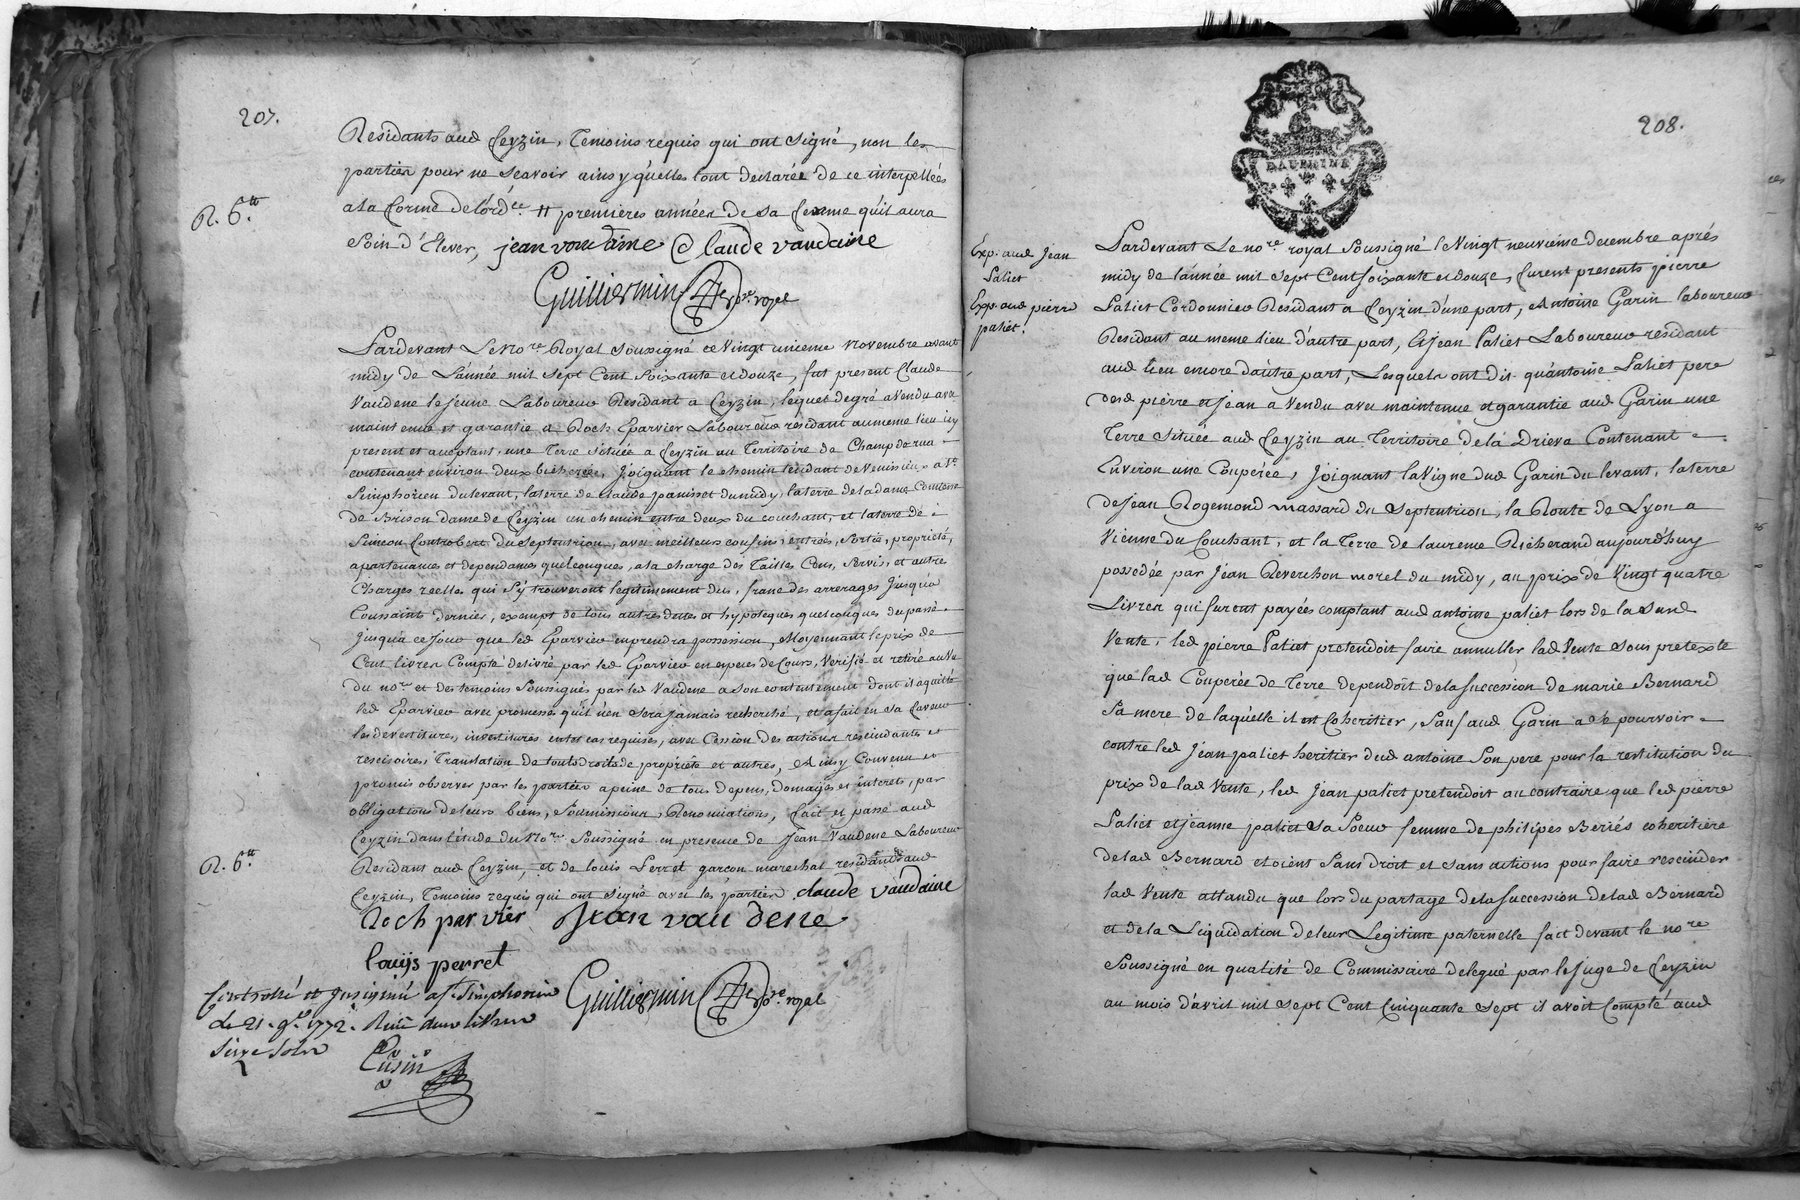 207.
Residants aud Feyzin, Temoins requis qui ont signé, non les
parties pour ne scavoir ainsy qu'elles l'ont declaréé de ce interpellées
R. 6.tt
a la forme de l'ord.ce tt premieres années de sa ferme qu'il aura
soin d'Elever, jean vaudaine Claude vaudaine
Guilliermin no.re royal
Pardevant Le No.re Royal soussigné ce vingt unieme novembre avant
midy de L'année mil sept Cent soixante et douze, fut present Claude
Vaudene le jeune Laboureur Residant a Feyzin, lequel de gré a Vendu avec
maintenue et garantie a Roch Eparvier Laboureur residant au meme lieu icy
present et acceptant, une Terre située a Feyzin au Territoire de Champ de rua
contenant environ deux bicherées, Joignant le chemin tendant de Venissieux a St
Simphorien du levant, la terre de Claude panisset du midy, la terre de la dame Comtesse
de Brison dame de Feyzin un chemin entre deux du couchant, et la terre de
Simeon Controbert du septentrion, avec meilleurs confins, entrées, sortis, propriété,
apartenances et dependances quelconques, a la charge des Tailles Cens, Servis, et autres
Charges réelles qui s'y trouveront legitimement dus, franc des arrerages jusqu'a
Toussaint dernier, exempt de tous autres dettes et hypoteques quelconques du passé
jusqu'a ce jour que led Eparvier en prendra possession, Moyennant le prix de
Cent livres Compté delivré par led Eparvier en especes de Cours, Verifié et retiré au Vu
du no.re et des temoins Soussignés par led Vaudene a son contentement dont il aquitte
led Eparvier avec promesse qu'il n'en sera jamais recherché, et a fait en sa faveur
les devestitures, investitures en tel cas requises, avec Cession des actions rescindantes et
rescisoires, Translation de tous droits de propriété et autres, Ainsy Convenu et
promis observer par les parties a peine de tous depens, domages et interets, par
obligations de leurs biens, soumissions, Renonciations, fait, et passé aud
Feyzin dans l'étude du No.re Soussigné en presence de Jean Vaudene Laboureur
R. 6.tt
Residant aud Feyzin, et de louis Perret garçon marechal residant aud
Feyzin, Temoins requis qui ont signé avec les parties. claude vaudaine
Roch parvier Jean vaudene
louijs perret
Controllé et Insinué a St Simphorien
Guilliermin no.re royal
Le 21. 9.bre 1772. Reçu
Cusin
208.
DAUPHINE
Exp. aud Jean
Paliet
Exp. aud pierre
paliet.
Pardevant Le no.re royal Soussigné le Vingt neuvieme decembre aprés
midy de l'année mil sept Cent soixante et douze, furent presents pierre
Paliet Cordonnier Residant a Feyzin d'une part, Antoine Garin laboureur
Residant au meme lieu d'autre part, Et Jean Paliet Laboureur residant
aud lieu encore d'autre part, Lesquels ont dit qu'antoine Paliet pere
desd pierre et jean a Vendu avec maintenue et garantie aud Garin une
Terre située aud Feyzin au Territoire de la Drieve Contenant
Environ une Couperée, Joignant la Vigne dud Garin du levant, la terre
de Jean Rogemond massard du Septentrion, la Route de Lyon a
Vienne du Couchant, et la Terre de laureme Richerand aujourd'huy
possedée par Jean Reverchon morel du midy, au prix de Vingt quatre
Livres qui furent payées comptant aud antoine paliet lors de la susd
Vente, led pierre Paliet pretendoit faire annuller lad Vente sous pretexte
que lad Couperée de Terre dependoit de la succession de marie Bernard
Sa mere de laquelle il est Coheritier, Sauf aud Garin a se pourvoir
contre led Jean paliet heritier dud antoine Son pere pour la restitution du
prix de lad Vente, led Jean paliet pretendoit au contraire que led pierre
Paliet et jeanne paliet Sa Soeur femme de philipes Beriés coheritiere
de lad Bernard etoient Sans droit et sans actions pour faire rescinder
lad Vente attandu que lors du partage de la Succession de lad Bernard
et de la Liquidation de leur Legitime paternelle fait devant le no.re
Soussigné en qualité de Commissaire delegué par le Juge de Feyzin
au mois d'avril mil sept Cent Cinquante sept il avoit Compté aud